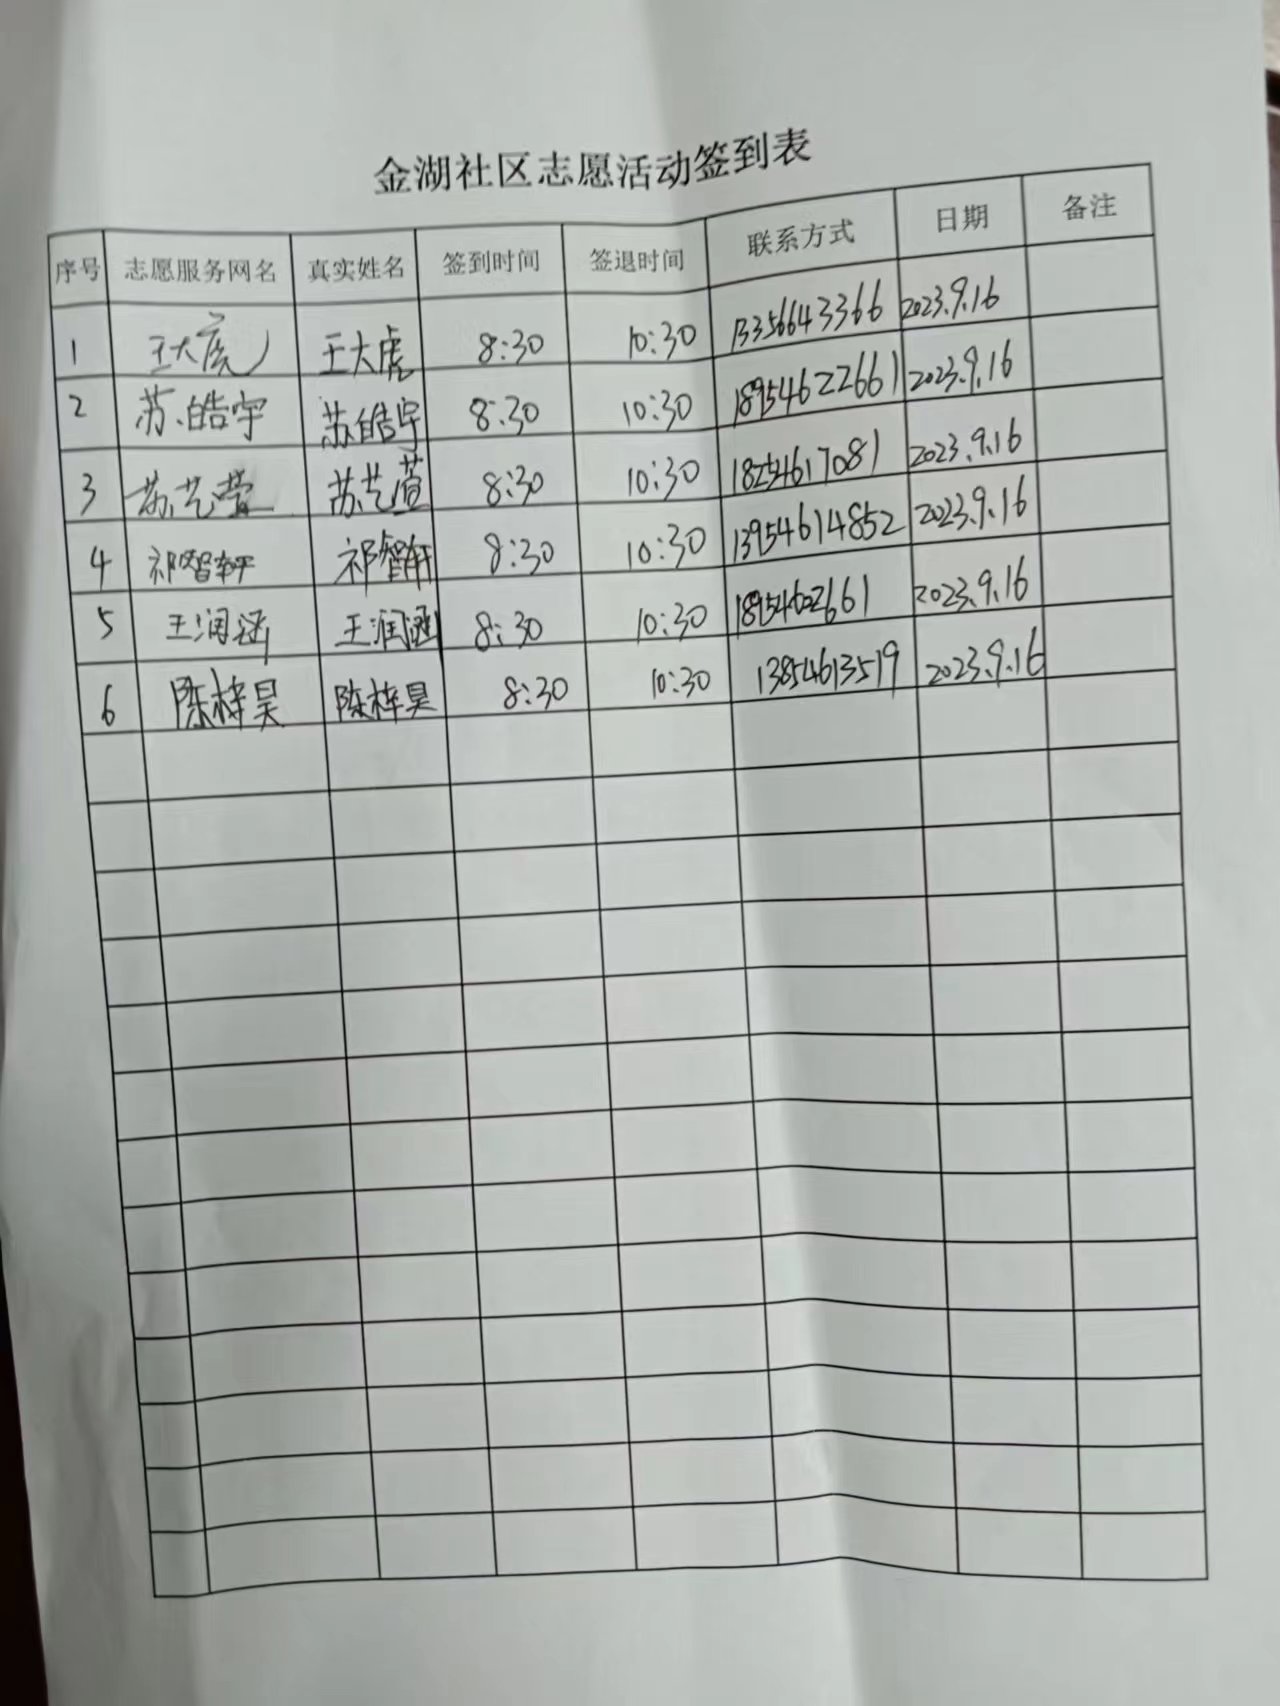 金湖社区志愿活动签到表
序号 志愿服务网名 真实姓名 签到时间 签退时间 联系方式 日期 备注
1 王大虎 王大虎 8:30 10:30 13356643366 2023.9.16
2 苏皓宇 苏皓宇 8:30 10:30 18954622661 2023.9.16
3 苏艺萱 苏艺萱 8:30 10:30 18254617081 2023.9.16
4 祁智轩 祁智轩 8:30 10:30 13954614852 2023.9.16
5 王润涵 王润涵 8:30 10:30 2023.9.16
6 陈梓昊 陈梓昊 8:30 10:30 13854613519 2023.9.16